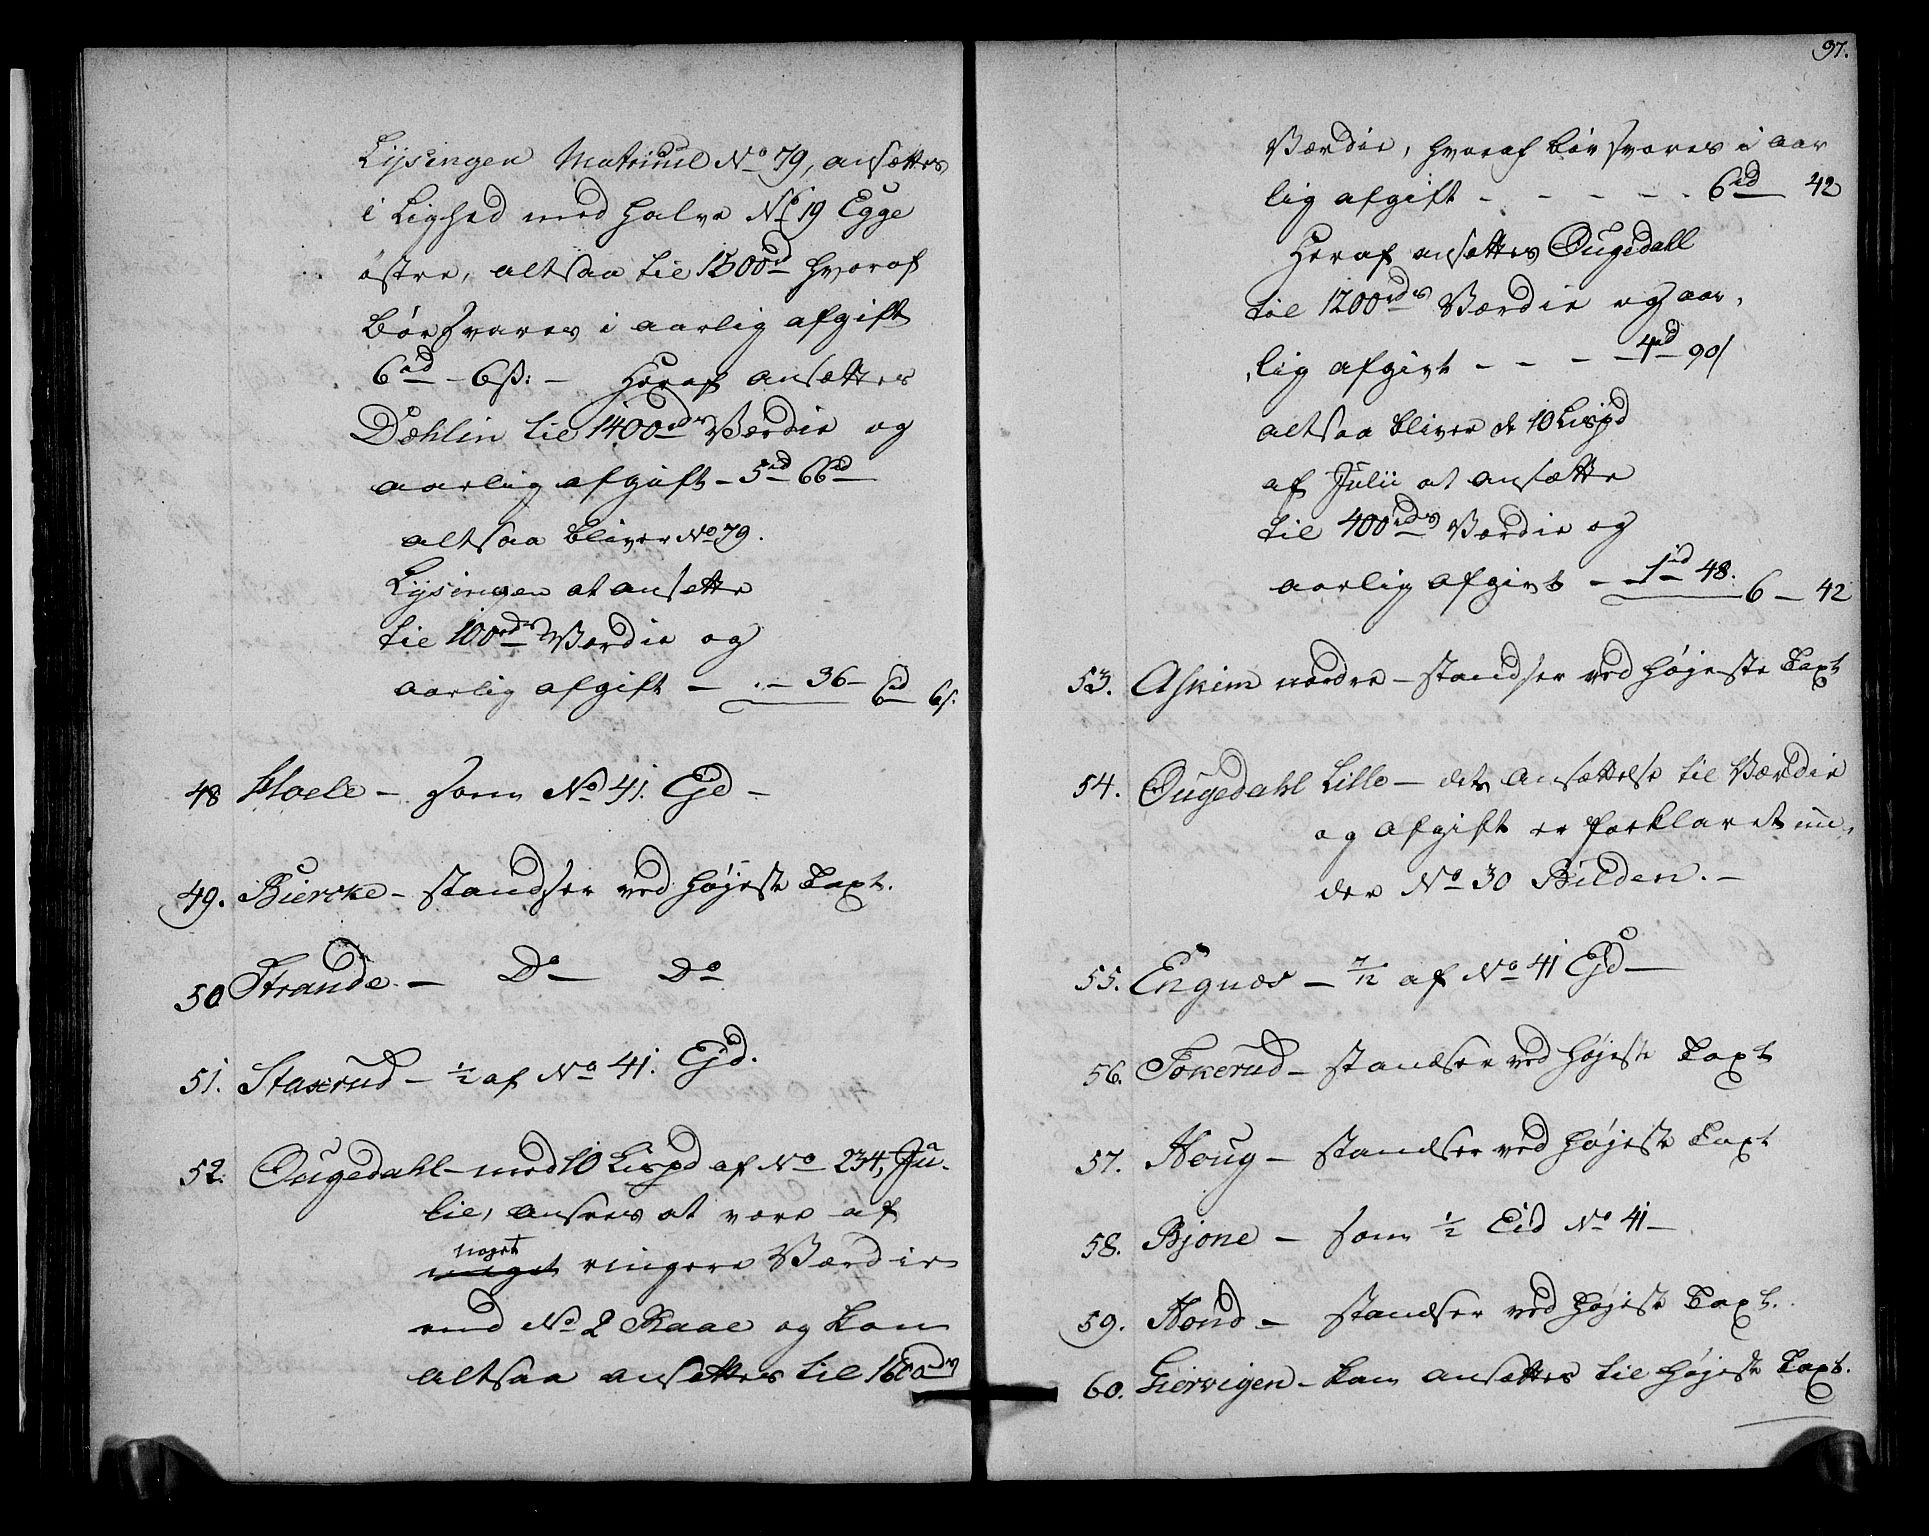 Lysingen Matricul No 79, ansættes
i Lighed med halve No 19 Egge
østre, altsaa til 1500rd hvoraf
bør svares i aarlig afgift
6rd - 6ß: - Heraf ansættes
Dæhlin til 1400rds Værdie og
aarlig afgift - 5rd 66ß
altsaa bliver No 79.
Lysingen at ansette
til 100rds Værdie og
aarlig afgift - . - 36 - 6rd 6ß.
48 Hoele - som No 41. Ejd -
49. Biercke - standser ved højeste Taxt.
50 Strande - Do - Do
51. Staxrud - 1/2 af No 41. Ejd.
52. Ougedahl - med 10 Lispd af No 234, Ju-
lie, ansees at være af
noget
meget ringere Værdie
end No 2 Raae og kan
altsaa ansettes til 1600rds
97.
Værdie, hvoraf bør svares i aar
lig afgift - - - - - 6rd 42
Heraf ansettes Ougedall
til 1200rds Værdie og aar,
lig afgivt - - - 4rd 90ß
altsaa bliver de 10 Lispd
af Julii at ansætte
til 400rds Værdie og
aarlig afgivt - 1rd 48. 6 - 42
53. Askim nordre - standser ved højeste Taxt
54. Ougedahl Lille - dets Ansættelse til Værdie
og afgift er forklaret un,
der No 30 Bilden. -
55. Engnæs - 7/12 af No 41 Ejd -
56. Tokerud - standser ved højeste Taxt
57. Houg - standser ved højeste Taxt
58. Bjone - som 1/2 Eid No 41 -
59. Hond - standser ved højeste Taxt.
60. Giervigen - kan ansættes til højeste Taxt.